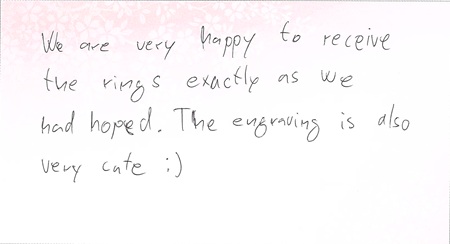 We are very happy to receive
the rings exactly as we
had hoped. The engraving is also
very cute :)